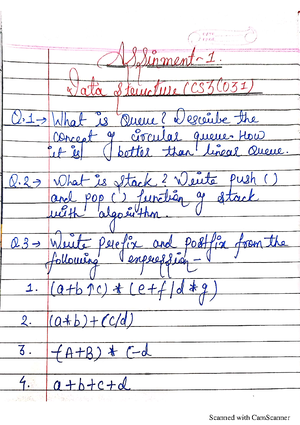 Assinment-1.
Data Structure (CS3(031)
Q.1→ What is Queue? Describe the
concept of circular queue. How
it is better than linear Queue.
Q.2→ What is Stack? Write push ()
and pop () function of stack
with algorithm.
Q.3→ Write prefix and postfix from the
following expression-
1. (a+b↑c) * (e+f/d*g)
2. (a*b)+(c/d)
3. -(A+B) * C-d
4. a+b+c+d
Scanned with CamScanner